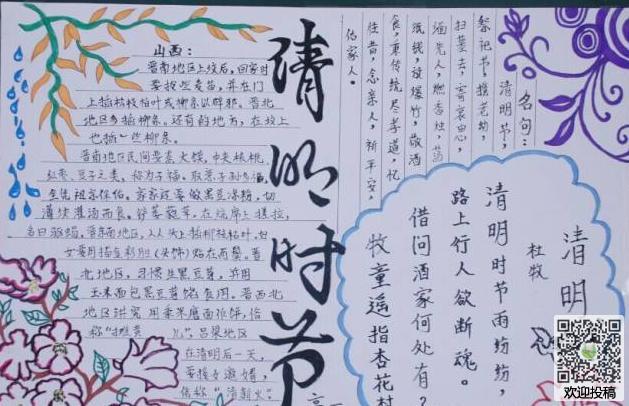 清明时节
山西：
晋南地区上坟后，回家时
要拔些麦苗，并在门
上插松枝柏叶或柳条以辟邪。晋北
地区多插柳条。还有的地方，在坟上
也插一些柳条。
晋南地区民间要蒸大馍，中夹核桃、
红枣、豆子之类，称为子福。取意子孙多福，
全凭祖宗保佑。家家还要做黑豆凉粉，切
薄块灌汤而食。铺
名曰驱蝎。晋东南地区，人人头上插柳枝枯叶，妇
女要用描金彩胜（头饰）贴在两鬓。晋
北地区，习惯生黑豆芽，并用
玉米面包黑豆芽馅食用。晋西北
地区讲究用黍米磨面作饼，俗
称“摊黄儿”。吕梁地区
在清明后一天，
要接女邀婿，
俗称“清新火”。
名句：
清明节，
祭祀节，携老幼，
扫墓去，寄哀思，
酒先人，燃香烛，荡
纸钱，放爆竹，敬酒
食，重传统，尽孝道，忆
往昔，念亲人，祈平安，
佑家人。
清明
杜牧
清明时节雨纷纷，
路上行人欲断魂。
借问酒家何处有？
牧童遥指杏花村
欢迎投稿